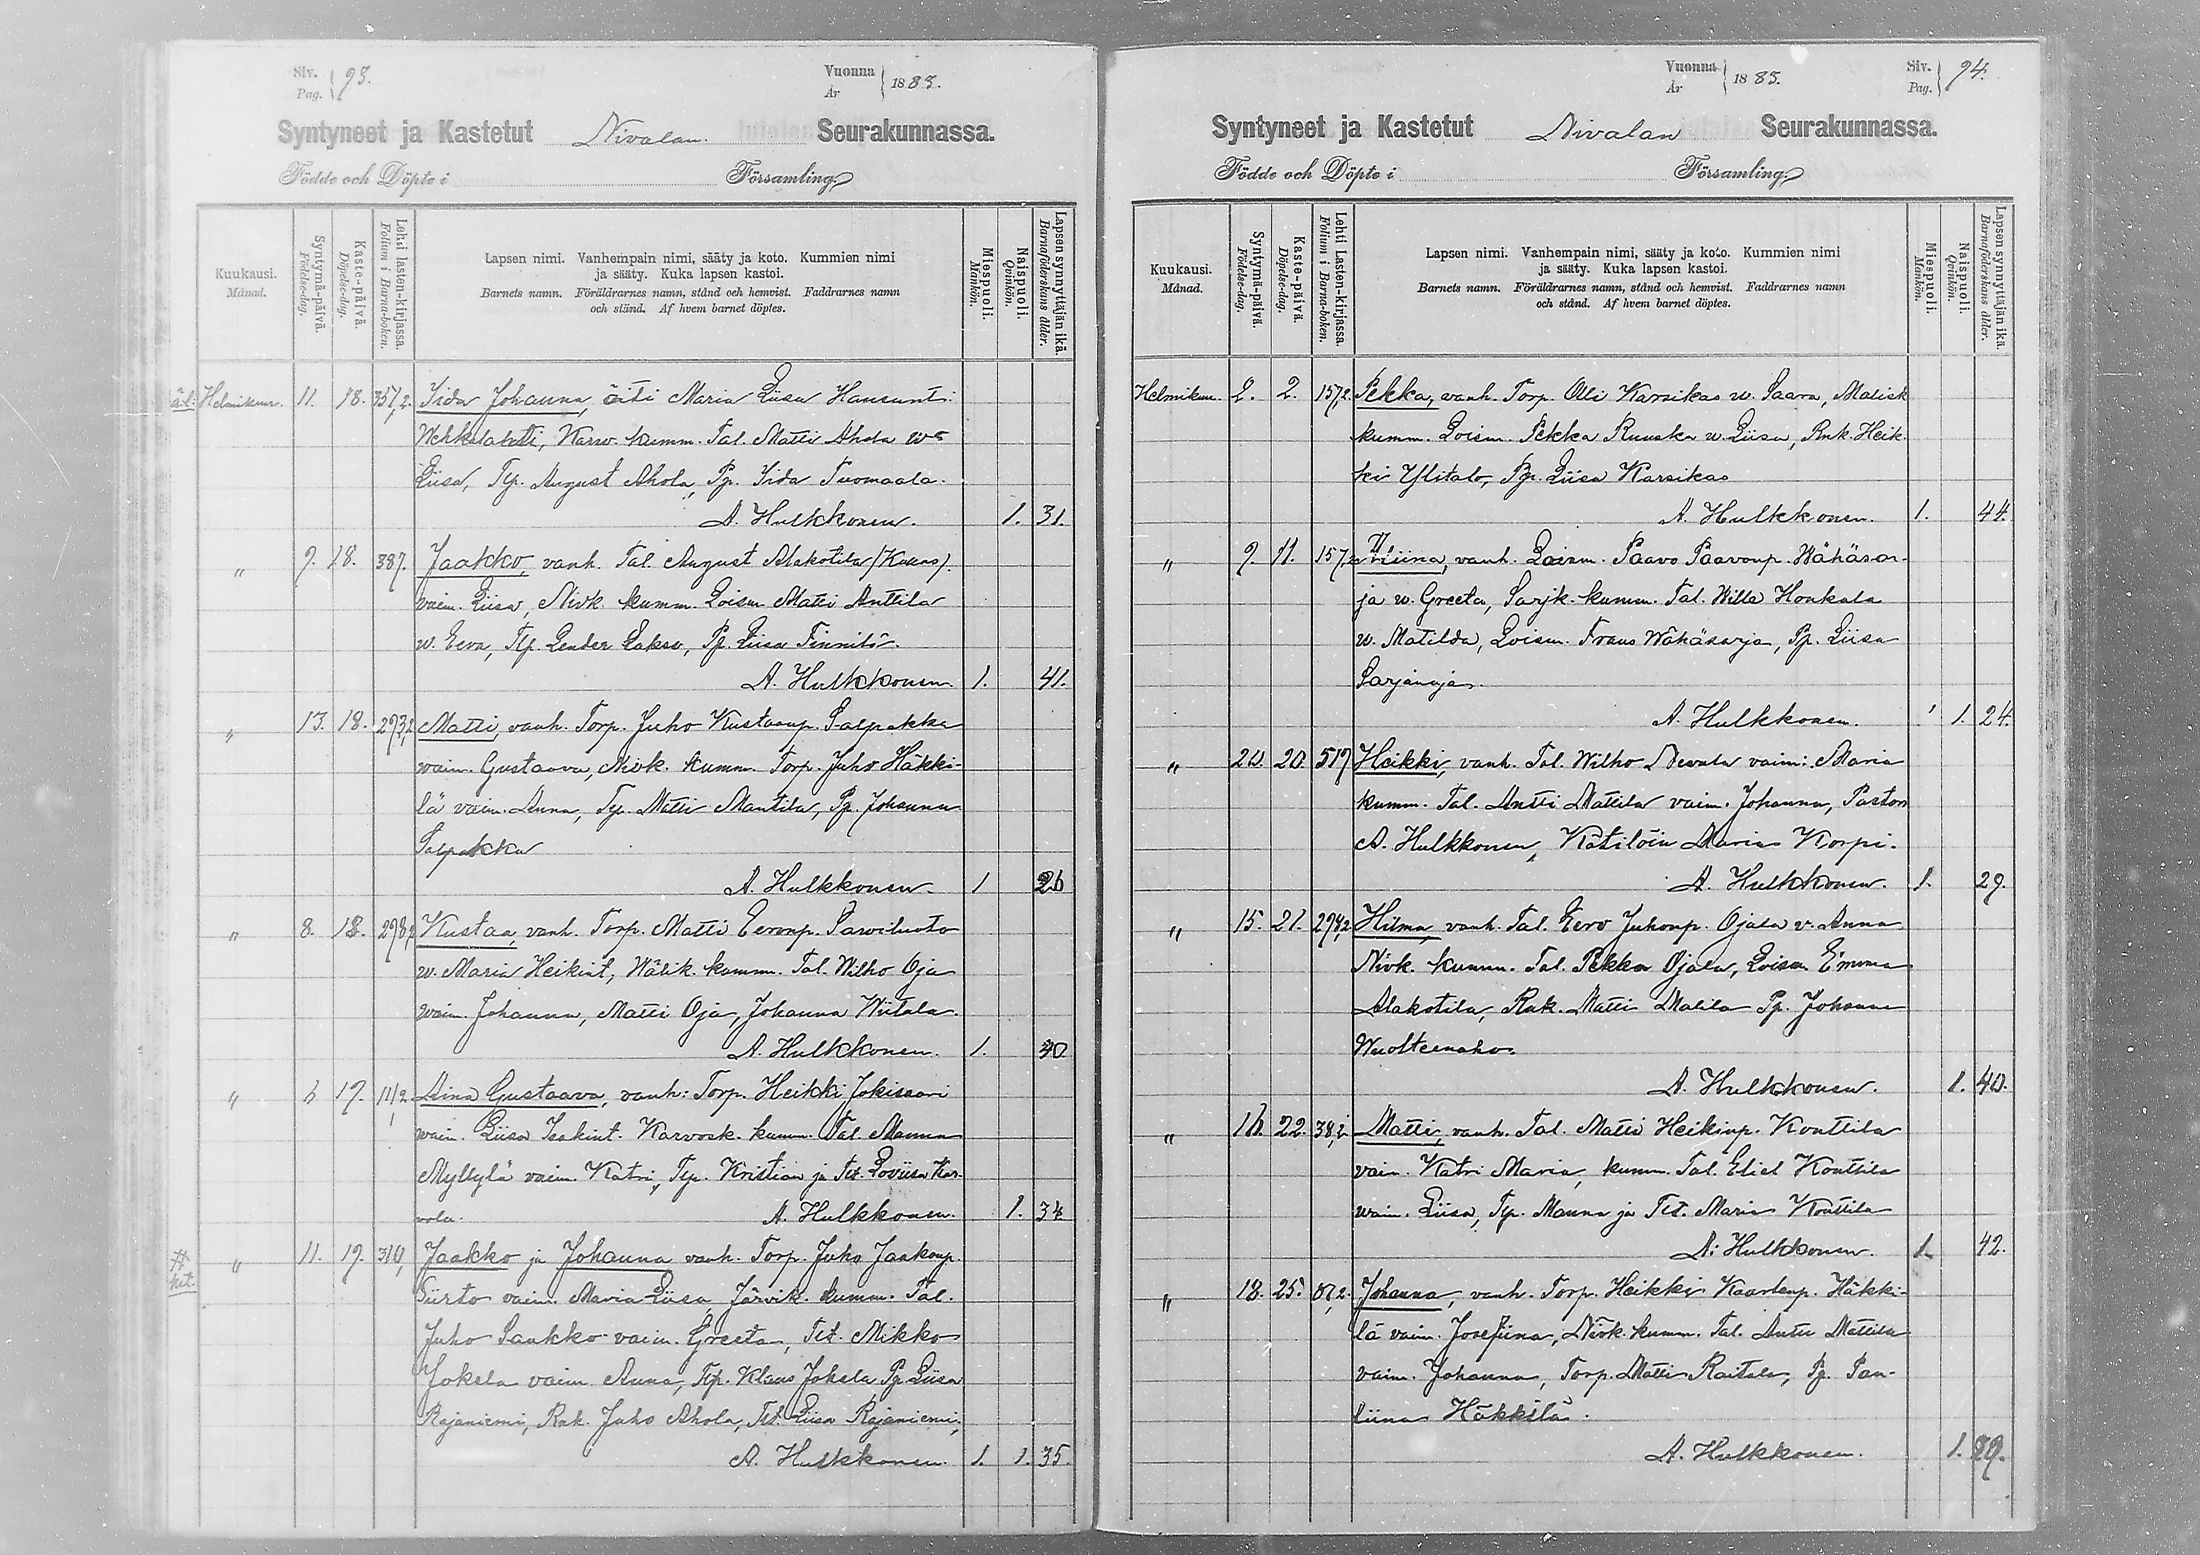 Siv. 93. Vuonna 1883.
Pag. År
Syntyneet ja Kastetut Nivalan Seurakunnassa.
Födde och Döpte i Församling
Kuukausi. Månad.
Syntymä-päivä. Födelse-dag.
Kaste-päivä. Döpelse-dag.
Lehti lasten-kirjassa. Folium i Barna-boken.
Lapsen nimi. Vanhempain nimi, sääty ja koto. Kummien nimi
ja sääty. Kuka lapsen kastoi.
Barnets namn. Föräldrarnes namn, stånd och hemvist. Faddrarnes namn
och stånd. Af hvem barnet döptes.
Miespuoli. Mankön.
Naispuoli. Qvinkön.
Lapsen synnyttäjän ikä. Barnaföderskans ålder.
äl. Helmikuu. 11. 18. 357,2. Iida Johanna, äiti Maria Liisa Hansunt.
Wehkalahti, Karv. kumm. Tal. Matti Ahola w
Liisa, Tlp. August Ahola, Pp. Iida Tuomaala.
A. Hulkkonen. 1. 31.
" 9. 18. 387. Jaakko, vanh. Tal. August Alakotila (Kuans).
vaim. Liisa, Nivk. kumm. Loism. Matti Anttila
w. Eeva, Tlp. Leander Lakso, Pp. Liisa Finnilä.
A. Hulkkonen. 1. 41.
" 13. 18. 293,2 Matti, vanh. Torp. Juho Kustaanp. Salpakka
waim. Gustaava, Nivk. kumm. Torp. Juho Häkki-
lä vaim. Anna, Tp. Matti Mantila, Pp. Johanna
Salpakka
A. Hulkkonen. 1 26
" 8. 18. 298,2 Kustaa, vanh. Torp. Matti Eeronp. Sawiluoto
w. Maria Heikint, Wälik. kumm. Tal. Wilho Oja
waim. Johanna, Matti Oja, Johanna Wiitala.
A. Hulkkonen. 1. 40.
" 6 19. 11,2. Aina Gustaava, vanh: Torp. Heikki Jokisaari
waim. Liisa Isakint. Karvosk. kumm. Tal. Manna
Myllylä vaim. Katri, Tlp. Kristian ja Tlt. Loviisa Kar-
vola. A. Hulkkonen. 1. 34
kat. " 11. 19. 310, Jaakko ja Johanna vanh. Torp. Juho Jaakonp
Siirto vaim. Maria Liisa, Järvik. kumm. Tal.
Juho Saukko vaim. Greeta, Tlt. Mikko
Jokela vaim Anna, Tlp. Klaus Jokela, Pp. Liisa
Rajaniemi, Rnk. Juho Ahola, Tlt. Liisa Rajaniemi,
A. Hulkkonen. 1. 1. 35.
Vuonna 1883. Siv. 94.
År Pag.
Syntyneet ja Kastetut Nivalan Seurakunnassa.
Födde och Döpte i Församling
Kuukausi. Månad.
Syntymä-päivä. Födelse-dag.
Kaste-päivä. Döpelse-dag.
Lehti Lasten-kirjassa. Folium i Barna-boken.
Lapsen nimi. Vanhempain nimi, sääty ja koto. Kummien nimi
ja sääty. Kuka lapsen kastoi.
Barnets namn. Föräldrarnes namn, stånd och hemvist. Faddrarnes namn
och stånd. Af hvem barnet döptes.
Miespuoli. Mankön.
Naispuoli. Qvinkön.
Lapsen synnyttäjän ikä. Barnaföderskans ålder.
Helmikuu. 2. 2. 157,2. Pekka, vanh. Torp. Olli Karsikas w. Saara, Malisk
kumm. Loism. Pekka Ruuska w. Liisa, Rnk. Heik-
ki Ylitalo, Pp. Liisa Karsikas
A. Hulkkonen. 1. 44.
" 9. 11. 157,2 Miina, vanh. Loism. Paavo Paavonp. Wähäsar-
ja w. Greeta, Sarjk. kumm. Tal. Wille Honkala
w. Matilda, Loism. Frans Wähäsarja, Pp. Liisa
Sarjanoja.
A. Hulkkonen. 1. 24.
" 20. 20. 519 Heikki, vanh. Tal. Wilho Nevala vaim: Maria
kumm. Tal. Antti Mattila vaim. Johanna, Pastori
A. Hulkkonen, Kätilöin Maria Korpi.
A. Hulkkonen. 1. 29.
" 15. 21. 294,2 Hilma, vanh. Tal. Eero Juhonp. Ojala v. Anna
Nivk. kumm. Tal. Pekka Ojala, Loism. Emma
Alakotila, Rnk. Matti Malila Pp. Johanna
Wuolteenaho.
A. Hulkkonen. 1. 40.
" 16. 22. 38,2 Matti, vanh. Tal. Matti Heikinp. Konttila
vaim. Katri Maria, kumm. Tal. Eliel Konttila
waim. Liisa, Tlp. Manna ja Tlt. Maria Konttila
A. Hulkkonen. 1. 42.
" 18. 25. 87,2. Johanna, vanh. Torp. Heikki Kaarlenp. Häkki-
lä vaim. Josefiina, Nivk. kumm. Tal. Antti Mattila
vaim. Johanna, Torp. Matti Raitala, Pp. Pau-
liina Häkkilä.
A. Hulkkonen. 1. 29.